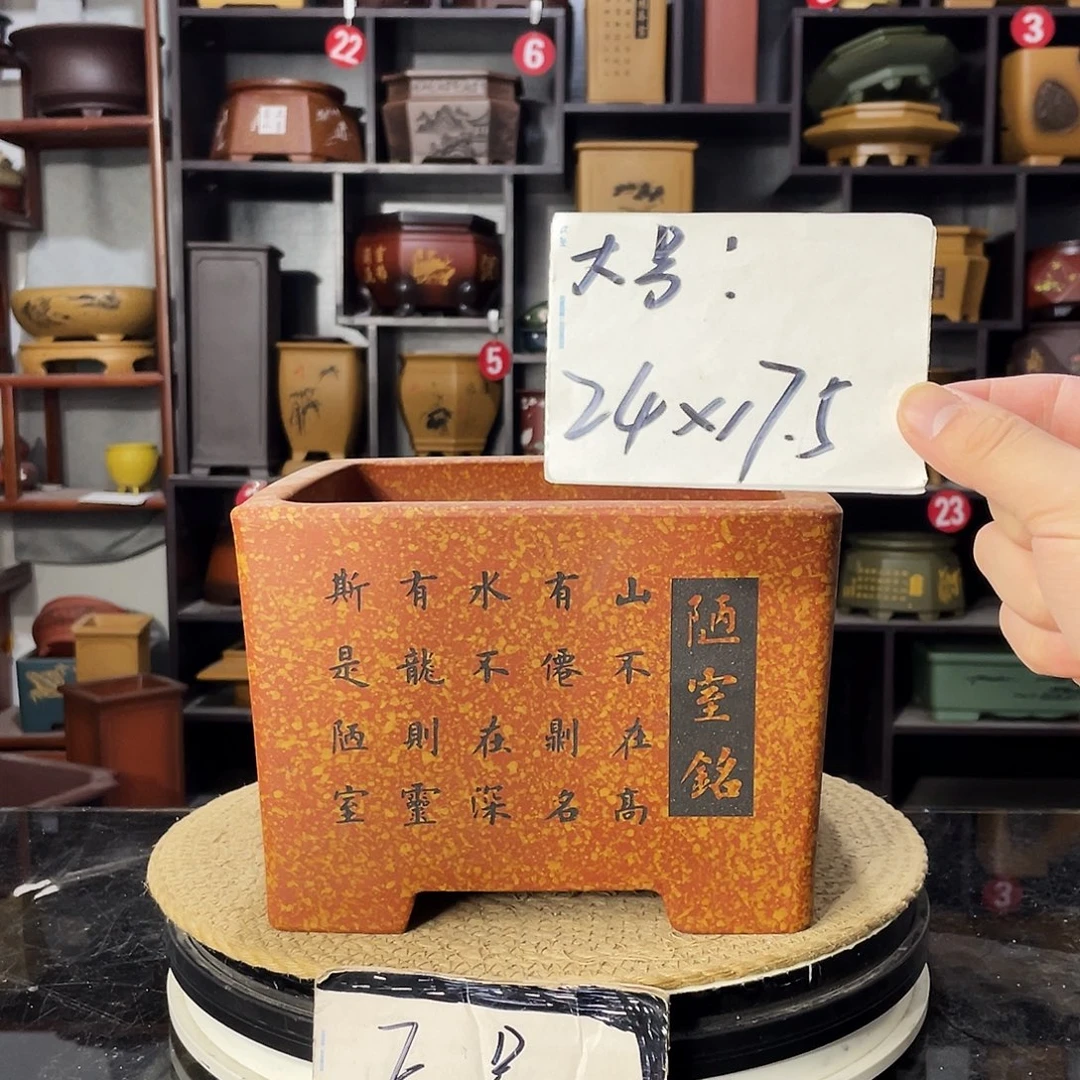 22
6
3
5
23
大号：
24×17.5
陋室銘
山不在高
有僊則名
水不在深
有龍則靈
斯是陋室